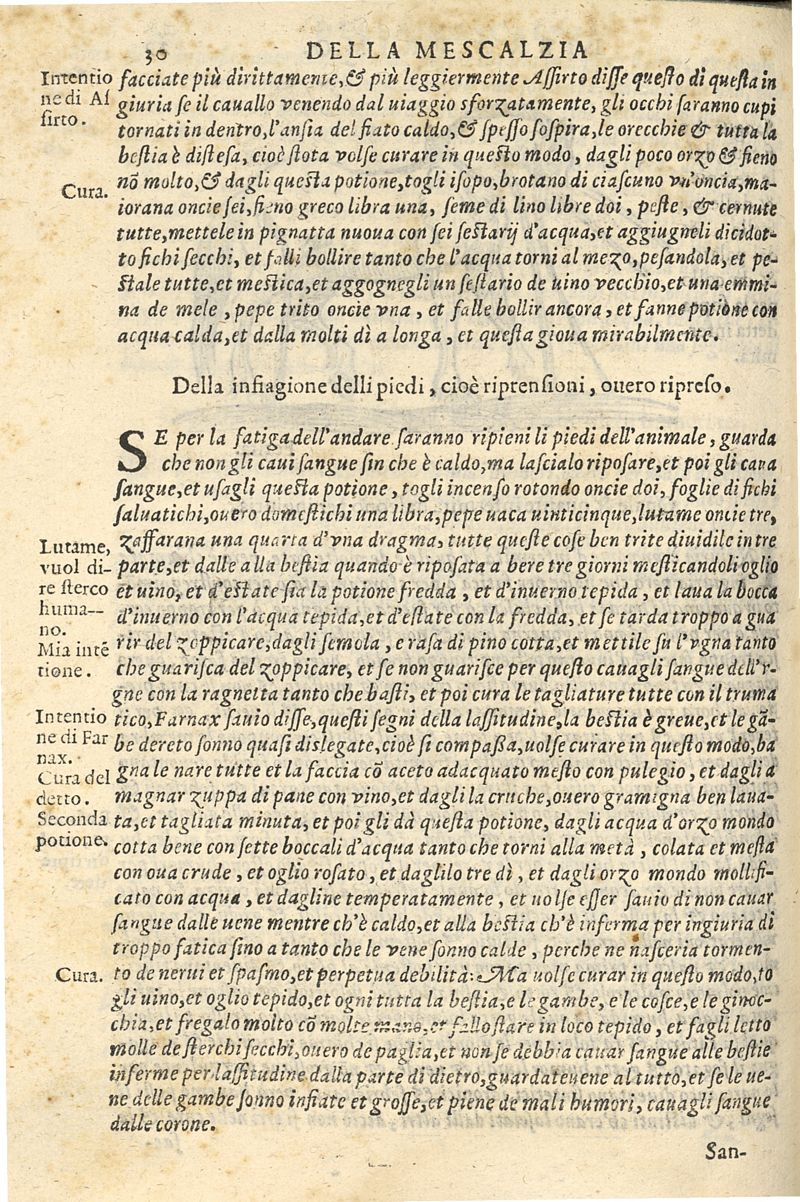 30 DELLA MESCALZIA
Intentio
ne di Aſ
ſirto.
facciate più dirittamente, & più leggiermente Aſſirto diſſe queſto di queſta in
giuria ſe il cauallo venendo dal uiaggio sforzatamente, gli occhi ſaranno cupi
tornati in dentro, l'anſia del fiato caldo, & ſpeſſo ſoſpira, le orecchie & tutta la
beſtia è diſteſa, cioè ſtota volſe curare in queſto modo, dagli poco orzo & fieno
Cura.
nõ molto, & dagli queſta potione, togli iſopo, brotano di ciaſcuno vn'oncia, ma-
iorana oncie ſei, fieno greco libra una, ſeme di lino libre doi, peſte, & cernute
tutte, mettele in pignatta nuoua con ſei ſeſtarij d'acqua, et aggiugneli dicidot-
to fichi ſecchi, et falli bollire tanto che l'acqua torni al mezo, peſandola, et pe-
ſtale tutte, et meſtica, et aggognegli un ſeſtario de uino vecchio, et una emmi-
na de mele, pepe trito oncie vna, et falle bollir ancora, et fanne potione con
acqua calda, et dalla molti dì a longa, et queſta gioua mirabilmente.
Della infiagione delli piedi, cioè riprenſioni, ouero ripreſo.
SE per la fatiga dell'andare ſaranno ripieni li piedi dell'animale, guarda
che non gli caui ſangue ſin che è caldo, ma laſcialo ripoſare, et poi gli caua
ſangue, et uſagli queſta potione, togli incenſo rotondo oncie doi, foglie di fichi
ſaluatichi, ouero domeſtichi una libra, pepe uaca uinticinque, lutame oncie tre,
Lutame,
vuol di-
re ſterco
huma-
no.
zaffarana una quarta d'vna dragma, tutte queſte coſe ben trite diuidile in tre
parte, et dalle alla beſtia quando è ripoſata a bere tre giorni meſticandoli oglio
et uino, et d'eſtate ſia la potione fredda, et d'inuerno tepida, et laua la bocca
d'inuerno con l'acqua tepida, et d'eſtate con la fredda, et ſe tarda troppo a gua
Mia intẽ
tione.
rir del zoppicare, dagli ſemola, e raſa di pino cotta, et mettile ſu l'vgna tanto
che guariſca del zoppicare, et ſe non guariſce per queſto cauagli ſangue dell'v-
gne con la ragnetta tanto che baſti, et poi cura le tagliature tutte con il truma
Intentio
ne di Far
nax.
tico, Farnax ſauio diſſe, queſti ſegni della laſſitudine, la beſtia è greue, et le gã-
be dereto ſonno quaſi dislegate, cioè ſi compaſſa, uolſe curare in queſto modo, ba
Cura del
detto.
gna le nare tutte et la faccia cõ aceto adacquato meſto con pulegio, et dagli a
magnar zuppa di pane con vino, et dagli la cruche, ouero gramigna ben laua-
Seconda
potione.
ta, et tagliata minuta, et poi gli dà queſta potione, dagli acqua d'orzo mondo
cotta bene con ſette boccali d'acqua tanto che torni alla metà, colata et meſta
con oua crude, et oglio roſato, et daglilo tre dì, et dagli orzo mondo mollifi-
cato con acqua, et dagline temperatamente, et uolſe eſſer ſauio di non cauar
ſangue dalle uene mentre ch'è caldo, et alla beſtia ch'è inferma per ingiuria di
troppo fatica ſino a tanto che le vene ſonno calde, perche ne naſceria tormen-
Cura.
to de nerui et ſpaſmo, et perpetua debilità: Ma uolſe curar in queſto modo, to
gli uino, et oglio tepido, et ogni tutta la beſtia, e le gambe, e le coſce, e le ginoc-
chia, et fregalo molto cõ molte mano, et fallo ſtare in loco tepido, et fagli letto
molle de ſterchi ſecchi, ouero de paglia, et non ſe debbia cauar ſangue alle beſtie
inferme per laſſitudine dalla parte di dietro, guardateuene al tutto, et ſe le ue-
ne delle gambe ſonno infiate et groſſe, et piene de mali humori, cauagli ſangue
dalle corone.
San-